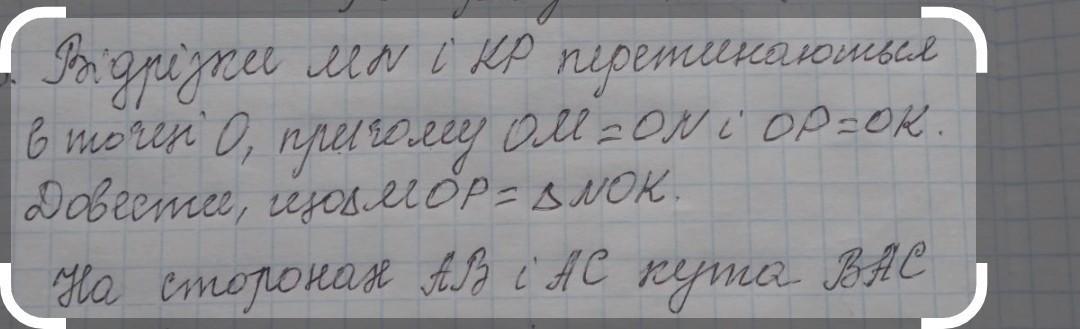 Відрізки MN і KP перетинаються
в точці O, причому OM=ON і OP=OK.
Довести, що△MOP=△NOK.
На сторонах AB і AC кута BAC